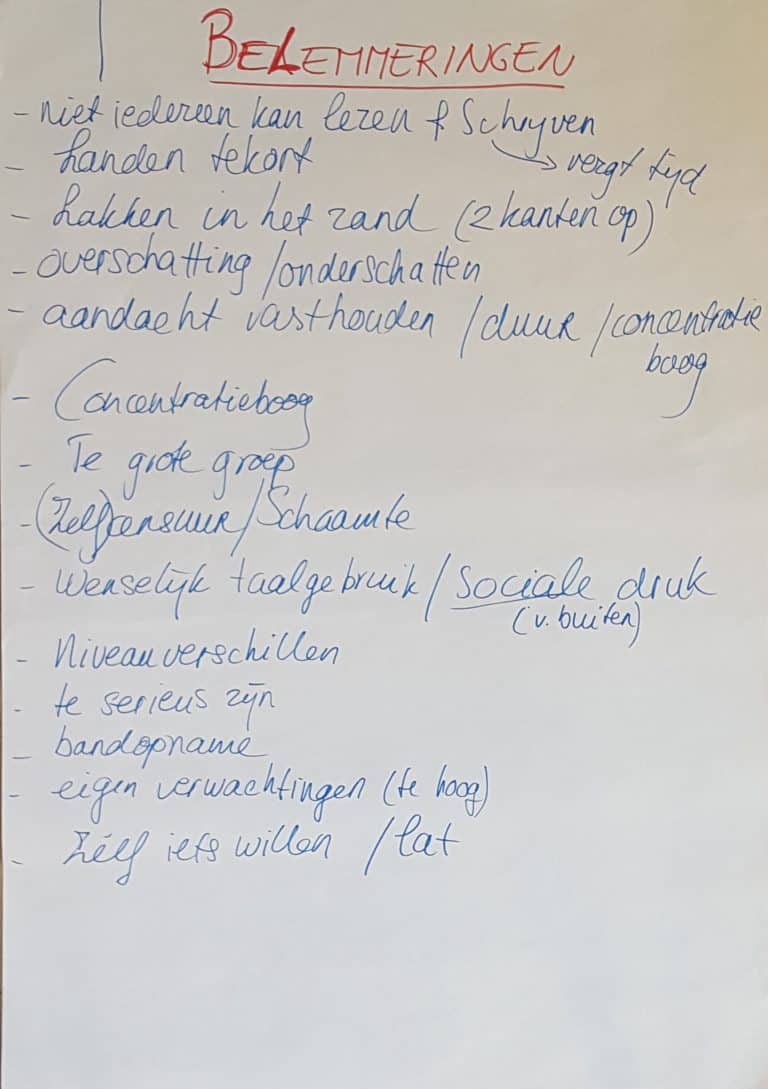 BELEMMERINGEN
- niet iedereen kan lezen & Schrijven
→ vergt tijd
- handen tekort
- hakken in het zand (2 kanten op)
- overschatting / onderschatten
- aandacht vasthouden / duur / concentratie
boog
- Concentratieboog
- Te grote groep
- (Zelf)censuur / Schaamte
- Wenselijk taalgebruik / Sociale druk
(v. buiten)
- Niveauverschillen
- te serieus zijn
- bandopname
- eigen verwachtingen (te hoog)
- Zélf iets willen / lat